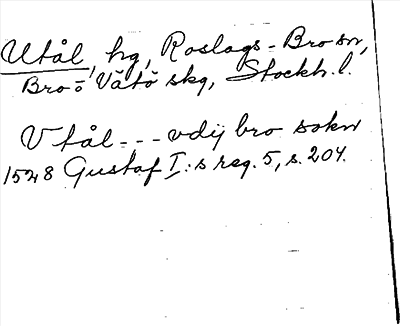 Utål, hg, Roslags-Bro sn,
Bro o Vätö skg, Stockh. l.
V tål - - - vdij bro sokn
1548 Gustaf I:s reg. 5, s. 204.